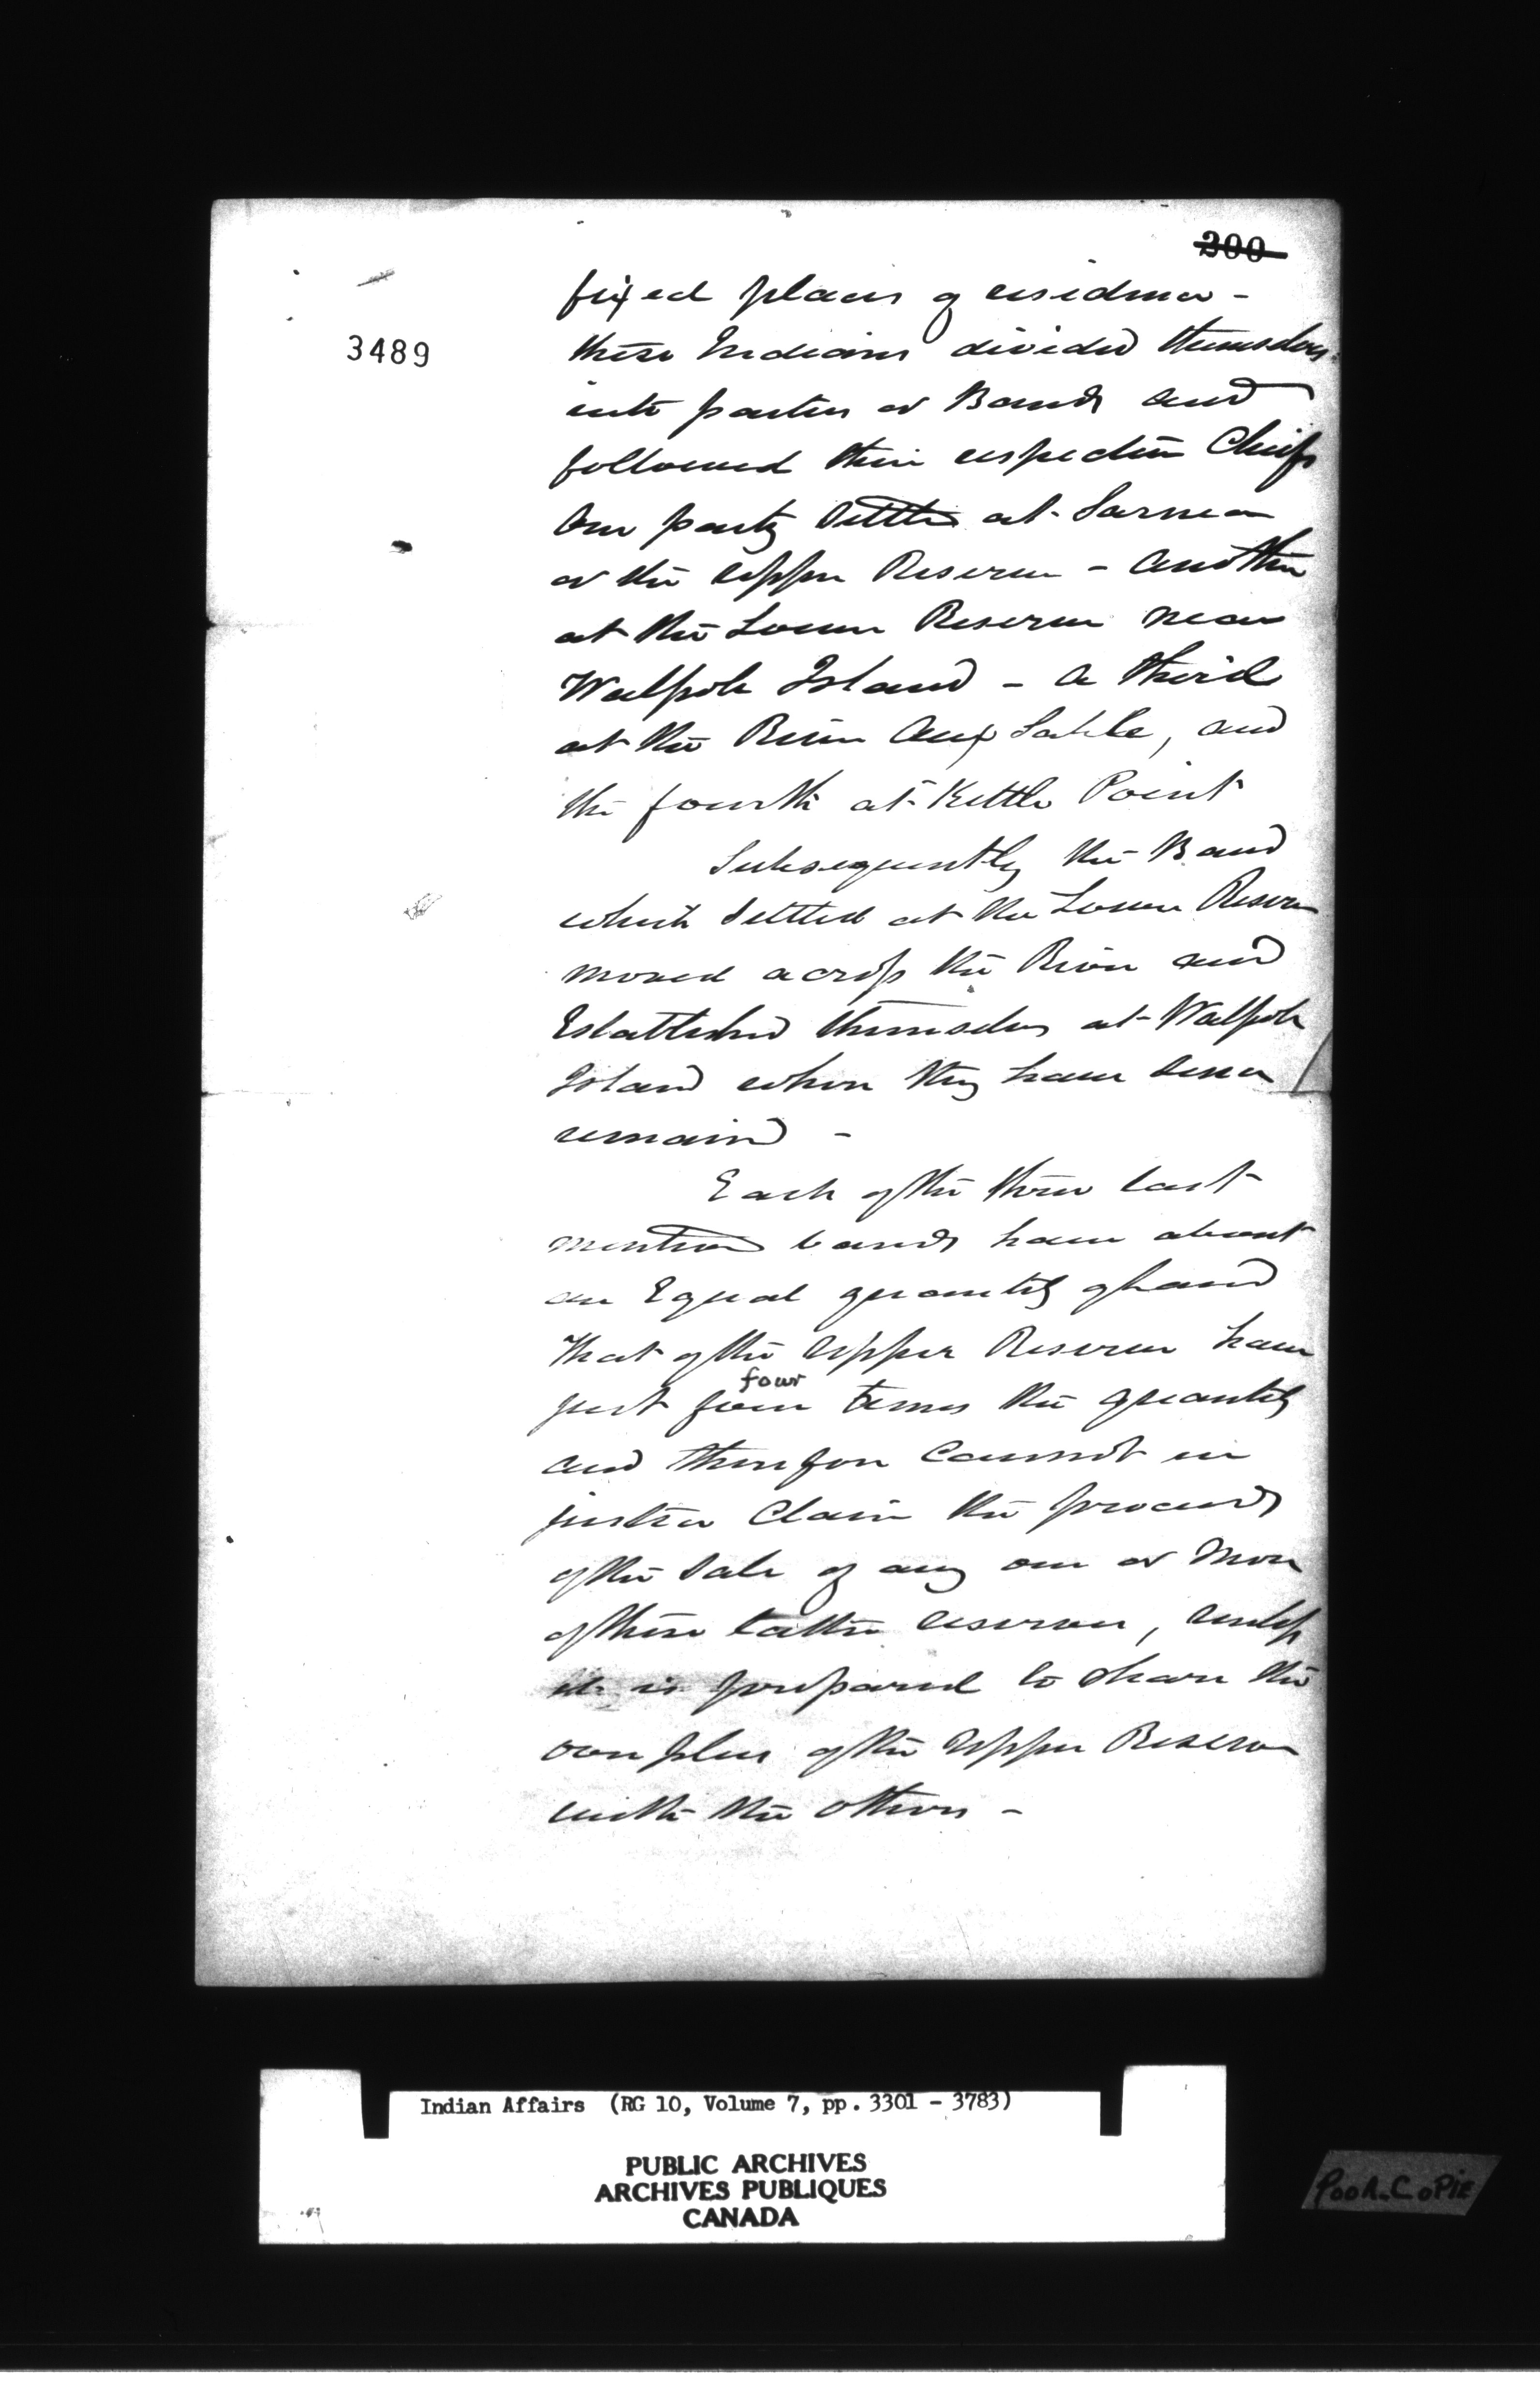 200
3489
fixed places of residence -
these Indians divided themselves
into parties or Bands and
followed their respective Chiefs
One party settled at Sarnia
or the Upper Reserve - Another
at the Lower Reserve near
Walpole Island - A third
at the River Aux Sable, and
the fourth at Kettle Point
Subsequently the Band
which settled at the Lower Reserve
moved across the River and
Established themselves at Walpole
Island where they have since
remained -
Each of the three last
mentioned bands have about
an Equal quantity of land
That of the Upper Reserve have
four
just four times the quantity
and therefore Cannot in
justice Claim the proceeds
of the Sale of any one or More
of these latter reserves, unless
it is prepared to share the
overplus of the Upper Reserve
with the others -
Indian Affairs (RG 10, Volume 7, pp. 3301 - 3783)
PUBLIC ARCHIVES
ARCHIVES PUBLIQUES
CANADA
POOR COPIE